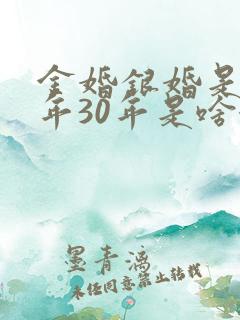 金婚银婚是
年30年是啥
墨青漓
未经同意禁止转载